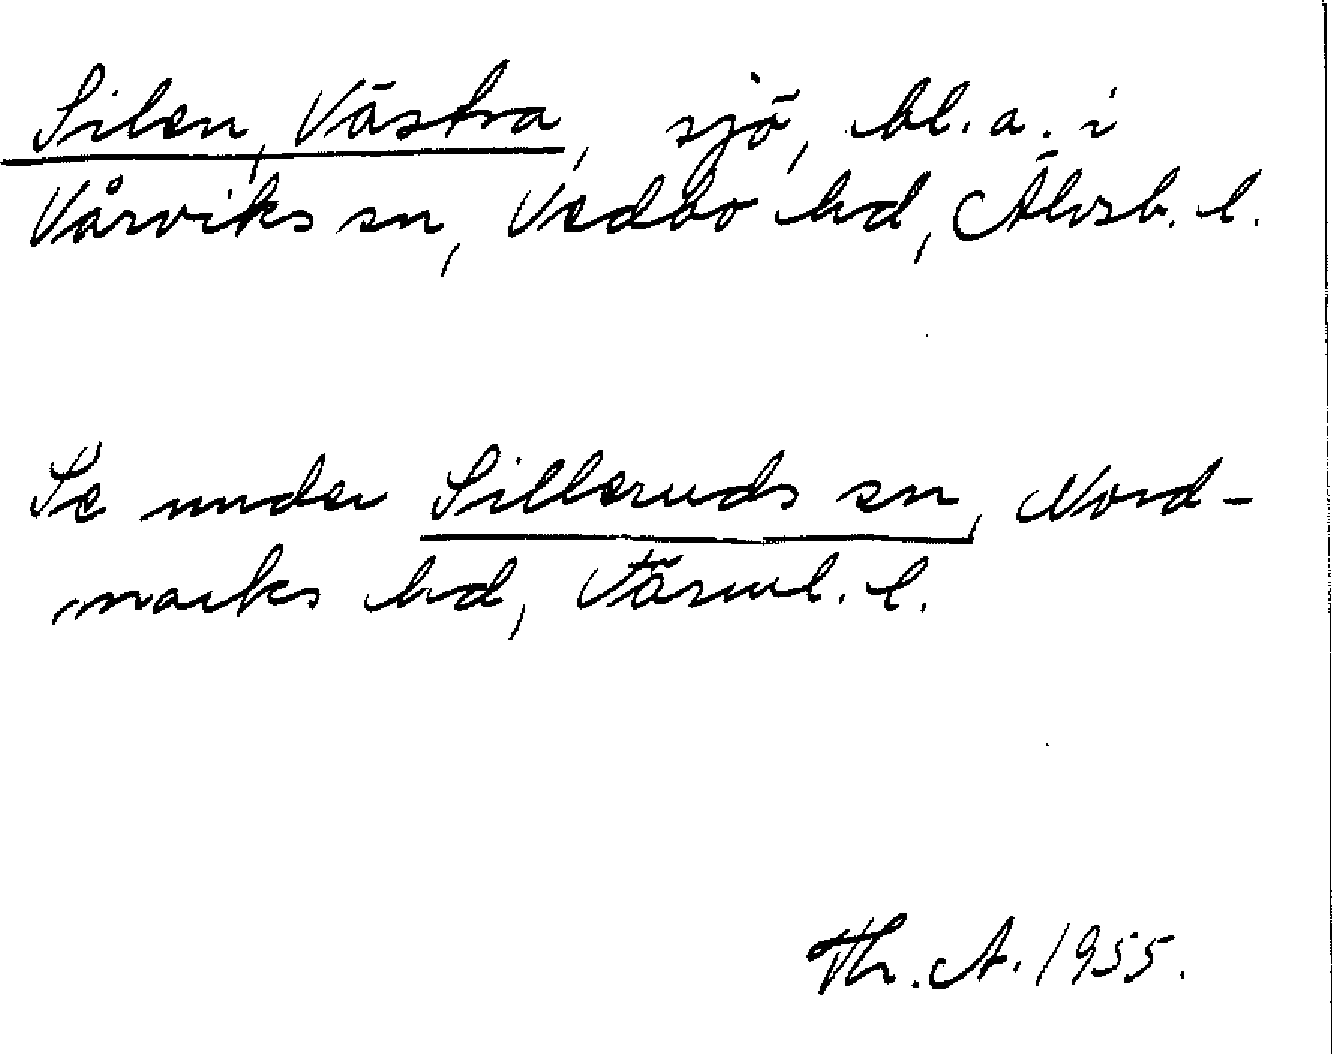 Silen, Västra, sjö, bl. a. i
Vårviks sn, Vedbo hd, Älvsb. l.
Se under Silleruds sn, Nord-
marks hd, Värml. l.
Th. A. 1955.